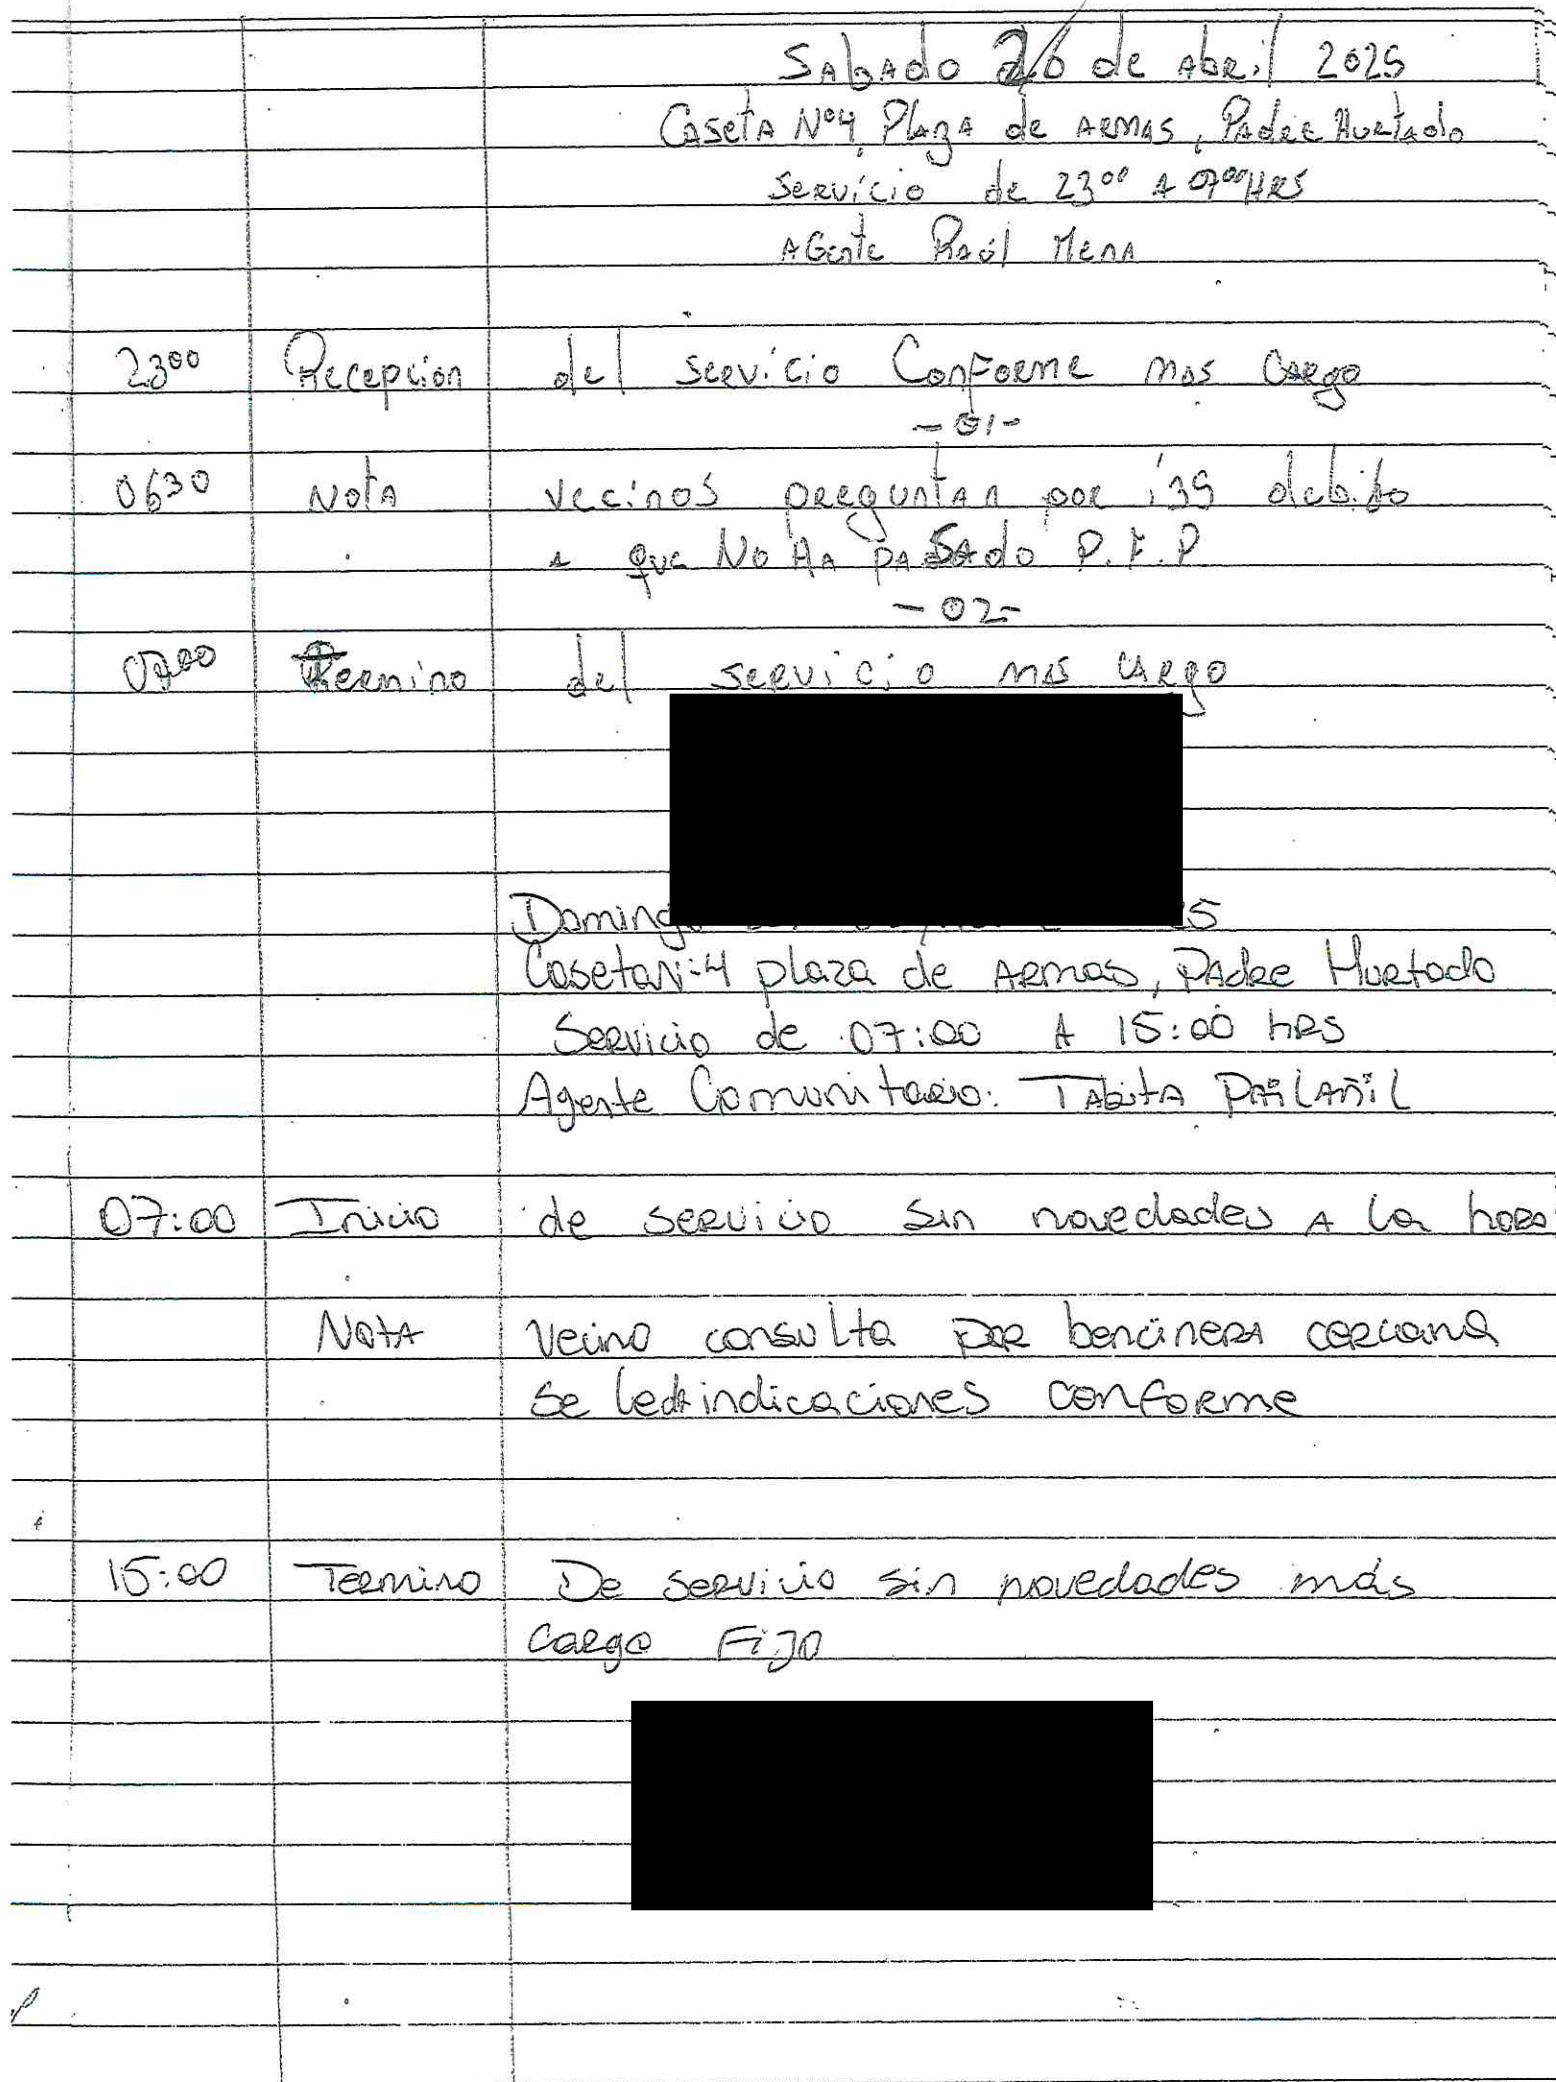 Sabado 26 de abril 2025
Caseta N°4, Plaza de Armas, Padre Hurtado
Servicio de 23°° A 07°°HRS
Agente Raúl Mena
23°° Recepcion del servicio Conforme mas Cargo
-01-
0630 Nota vecinos preguntan por debido
a que No Ha pasado P.F.P
-02-
07°° Termino del servicio mas cargo
Doming 5
Caseta N:4 plaza de Armas, Padre Hurtado
Servicio de 07:00 A 15:00 hrs
Agente Comunitario: Tabita Pailañil
07:00 Inicio de servicio sin novedades A la hora
Nota Vecino consulta por bencinera cercana
se le da indicaciones conforme
15:00 Termino De servicio sin novedades más
Cargo Fijo